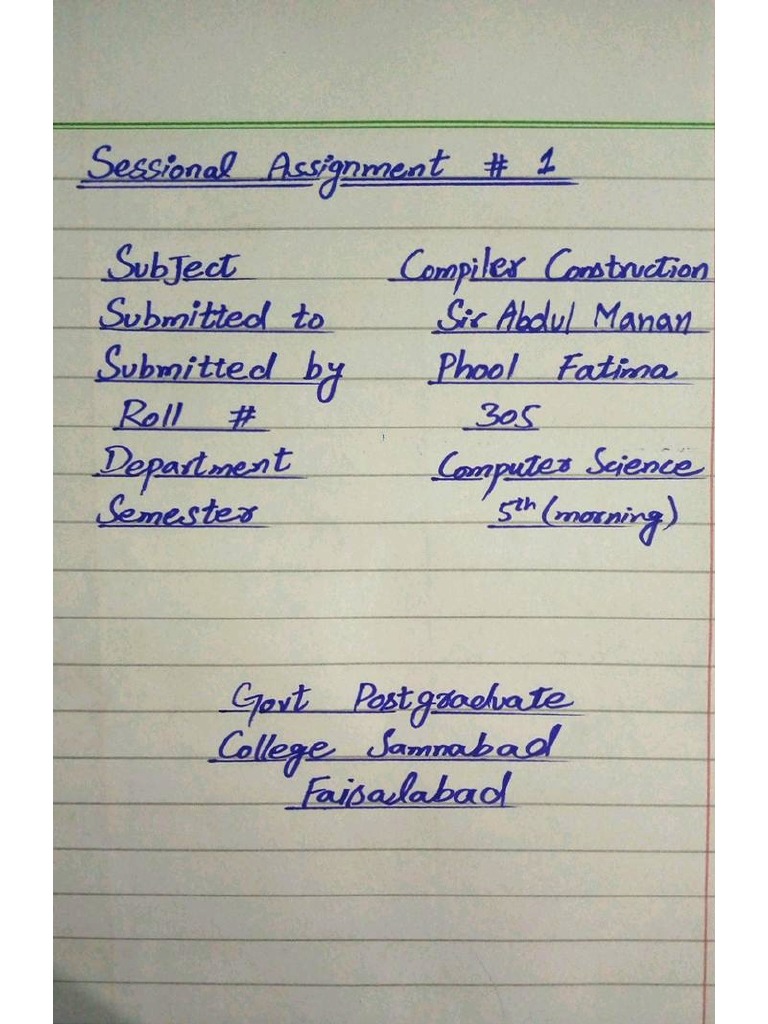 Sessional Assignment # 1
Subject Compiler Construction
Submitted to Sir Abdul Manan
Submitted by Phool Fatima
Roll # 305
Department Computer Science
Semester 5th (morning)
Govt Postgraduate
College Samnabad
Faisalabad